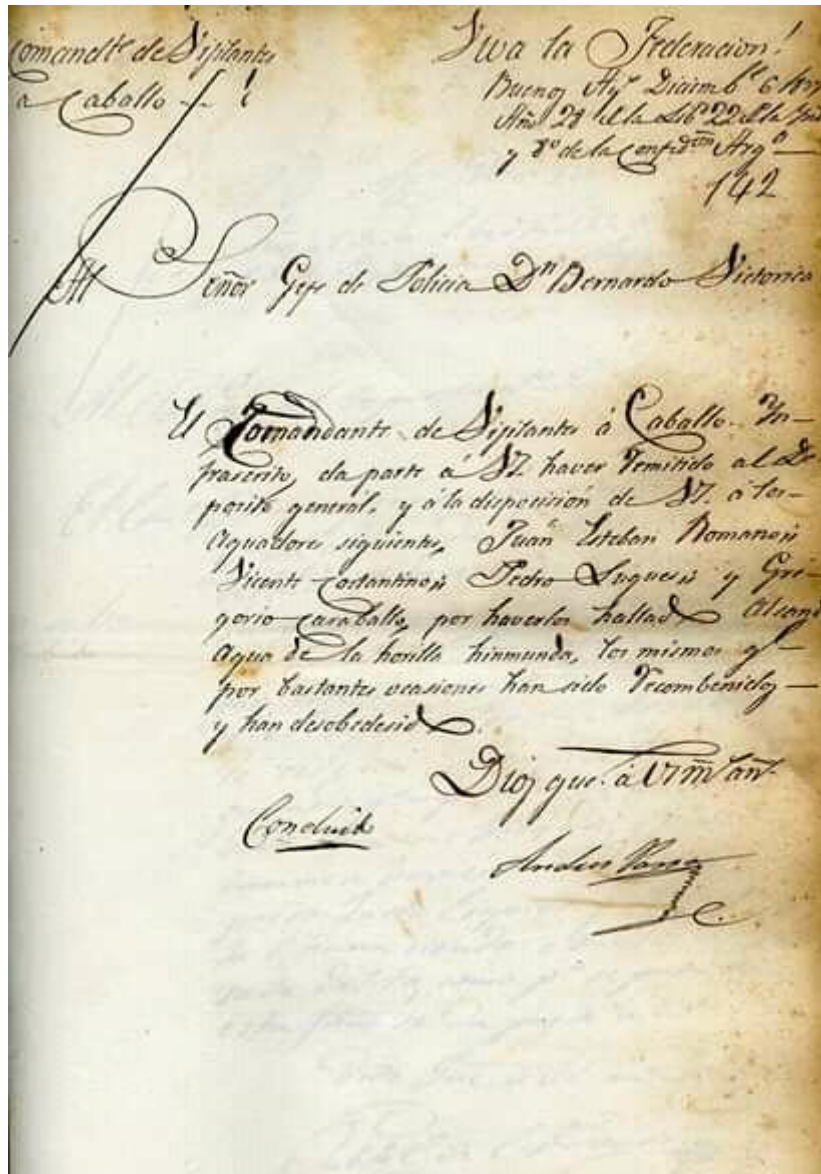 Comandte de Vijilantes
a Caballo
Viva la Federacion!
Buenos Ays Diciembe 6
Año 28 de la Libd 22 de la
y 8º de la Confedcion Arga
142
Al Señor Gefe de Policia Dn Bernardo Victorica
El Comandante de Vijilantes á Caballo In-
frascrito, da parte á VS. haver remitido al De-
posito general, y á la disposicion de VS. á los
Aguadores siguientes, Juan Esteban Romano,,
Vicente Costantino,, Pedro Luques,, y Gre-
gorio Caraballo, por haverlos hallado Alsand
Agua de la horilla hinmunda, los mismos q-
por bastantes ocasiones han sido recombenidos
y han desobedesido.
Dios gue. á VS ms ans.
Concluido
Andres